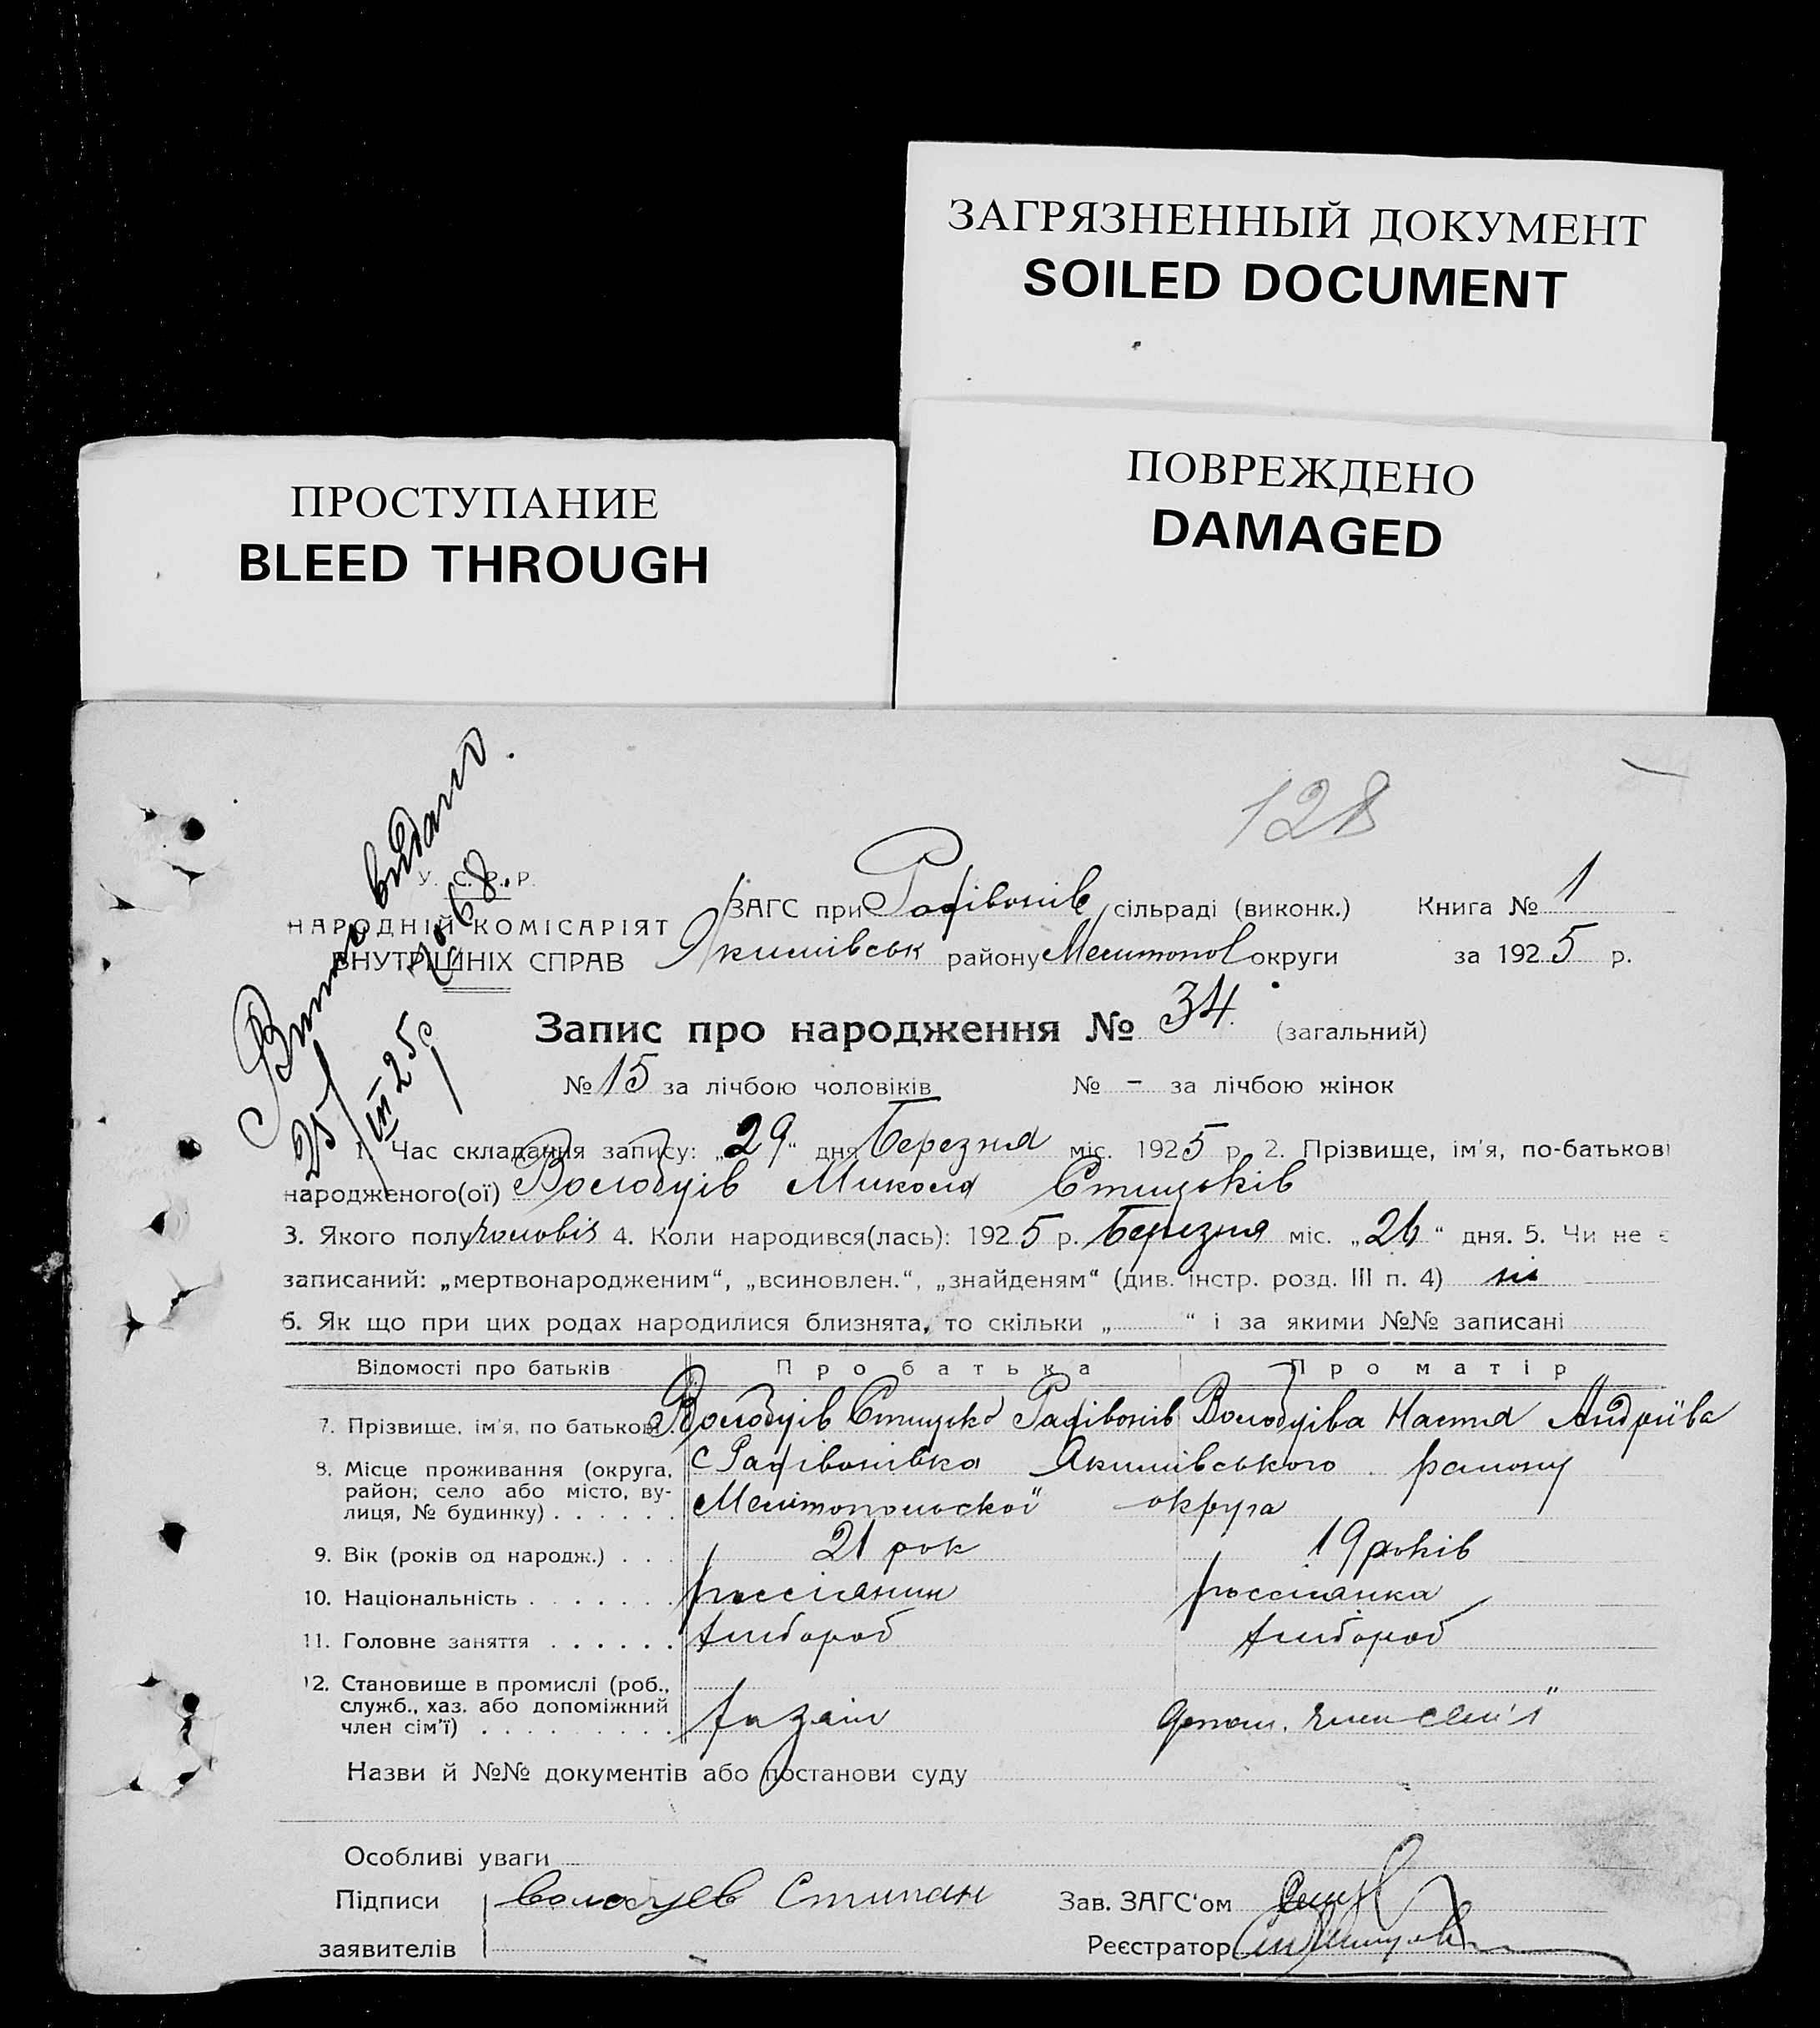 ЗАГРЯЗНЕННЫЙ ДОКУМЕНТ
SOILED DOCUMENT
ПРОСТУПАНИЕ
BLEED THROUGH
ПОВРЕЖДЕНО
DAMAGED
128
видано.
№ 68.
25/III 25 р
У. С. Р. Р.
НАРОДНІЙ КОМІСАРІЯТ
ВНУТРІШНІХ СПРАВ
ЗАГС при Радівонів сільраді (виконк.) Книга № 1
Якимівськ району Мелитопол округи за 1925 р.
Запис про народження № 34. (загальний)
№ 15 за лічбою чоловіків № - за лічбою жінок
1. Час складання запису: „29“ дня Березня міс. 1925 р. 2. Прізвище, ім'я, по-батькові
народженого(ої) Володуїв Микола
3. Якого полу чоловіч 4. Коли народився(лась): 1925 р. Березня міс. „26“ дня. 5. Чи не є
записаний: „мертвонародженим“, „всиновлен.“, „знайденям“ (див. інстр. розд. III п. 4) ні
6. Як що при цих родах народилися близнята, то скільки „ “ і за якими №№ записані
Відомості про батьків Про батька Про матір
7. Прізвище, ім'я, по батькові Володуїв Радівонів Володуїва Настя Андріїва
8. Місце проживання (округа, район, село або місто, вулиця, № будинку) с Радівонівка Якимівського району
Мелітопольскої округа
9. Вік (років од народж.) 21 рок 19 років
10. Національність россіянин россіянка
11. Головне заняття хлібороб хлібороб
12. Становище в промислі (роб., служб., хаз. або допоміжний член сім'ї) хазаїн допом. член сем'ї
Назви й №№ документів або постанови суду
Особливі уваги
Підписи Степан Зав. ЗАГС'ом
заявителів Реєстратор